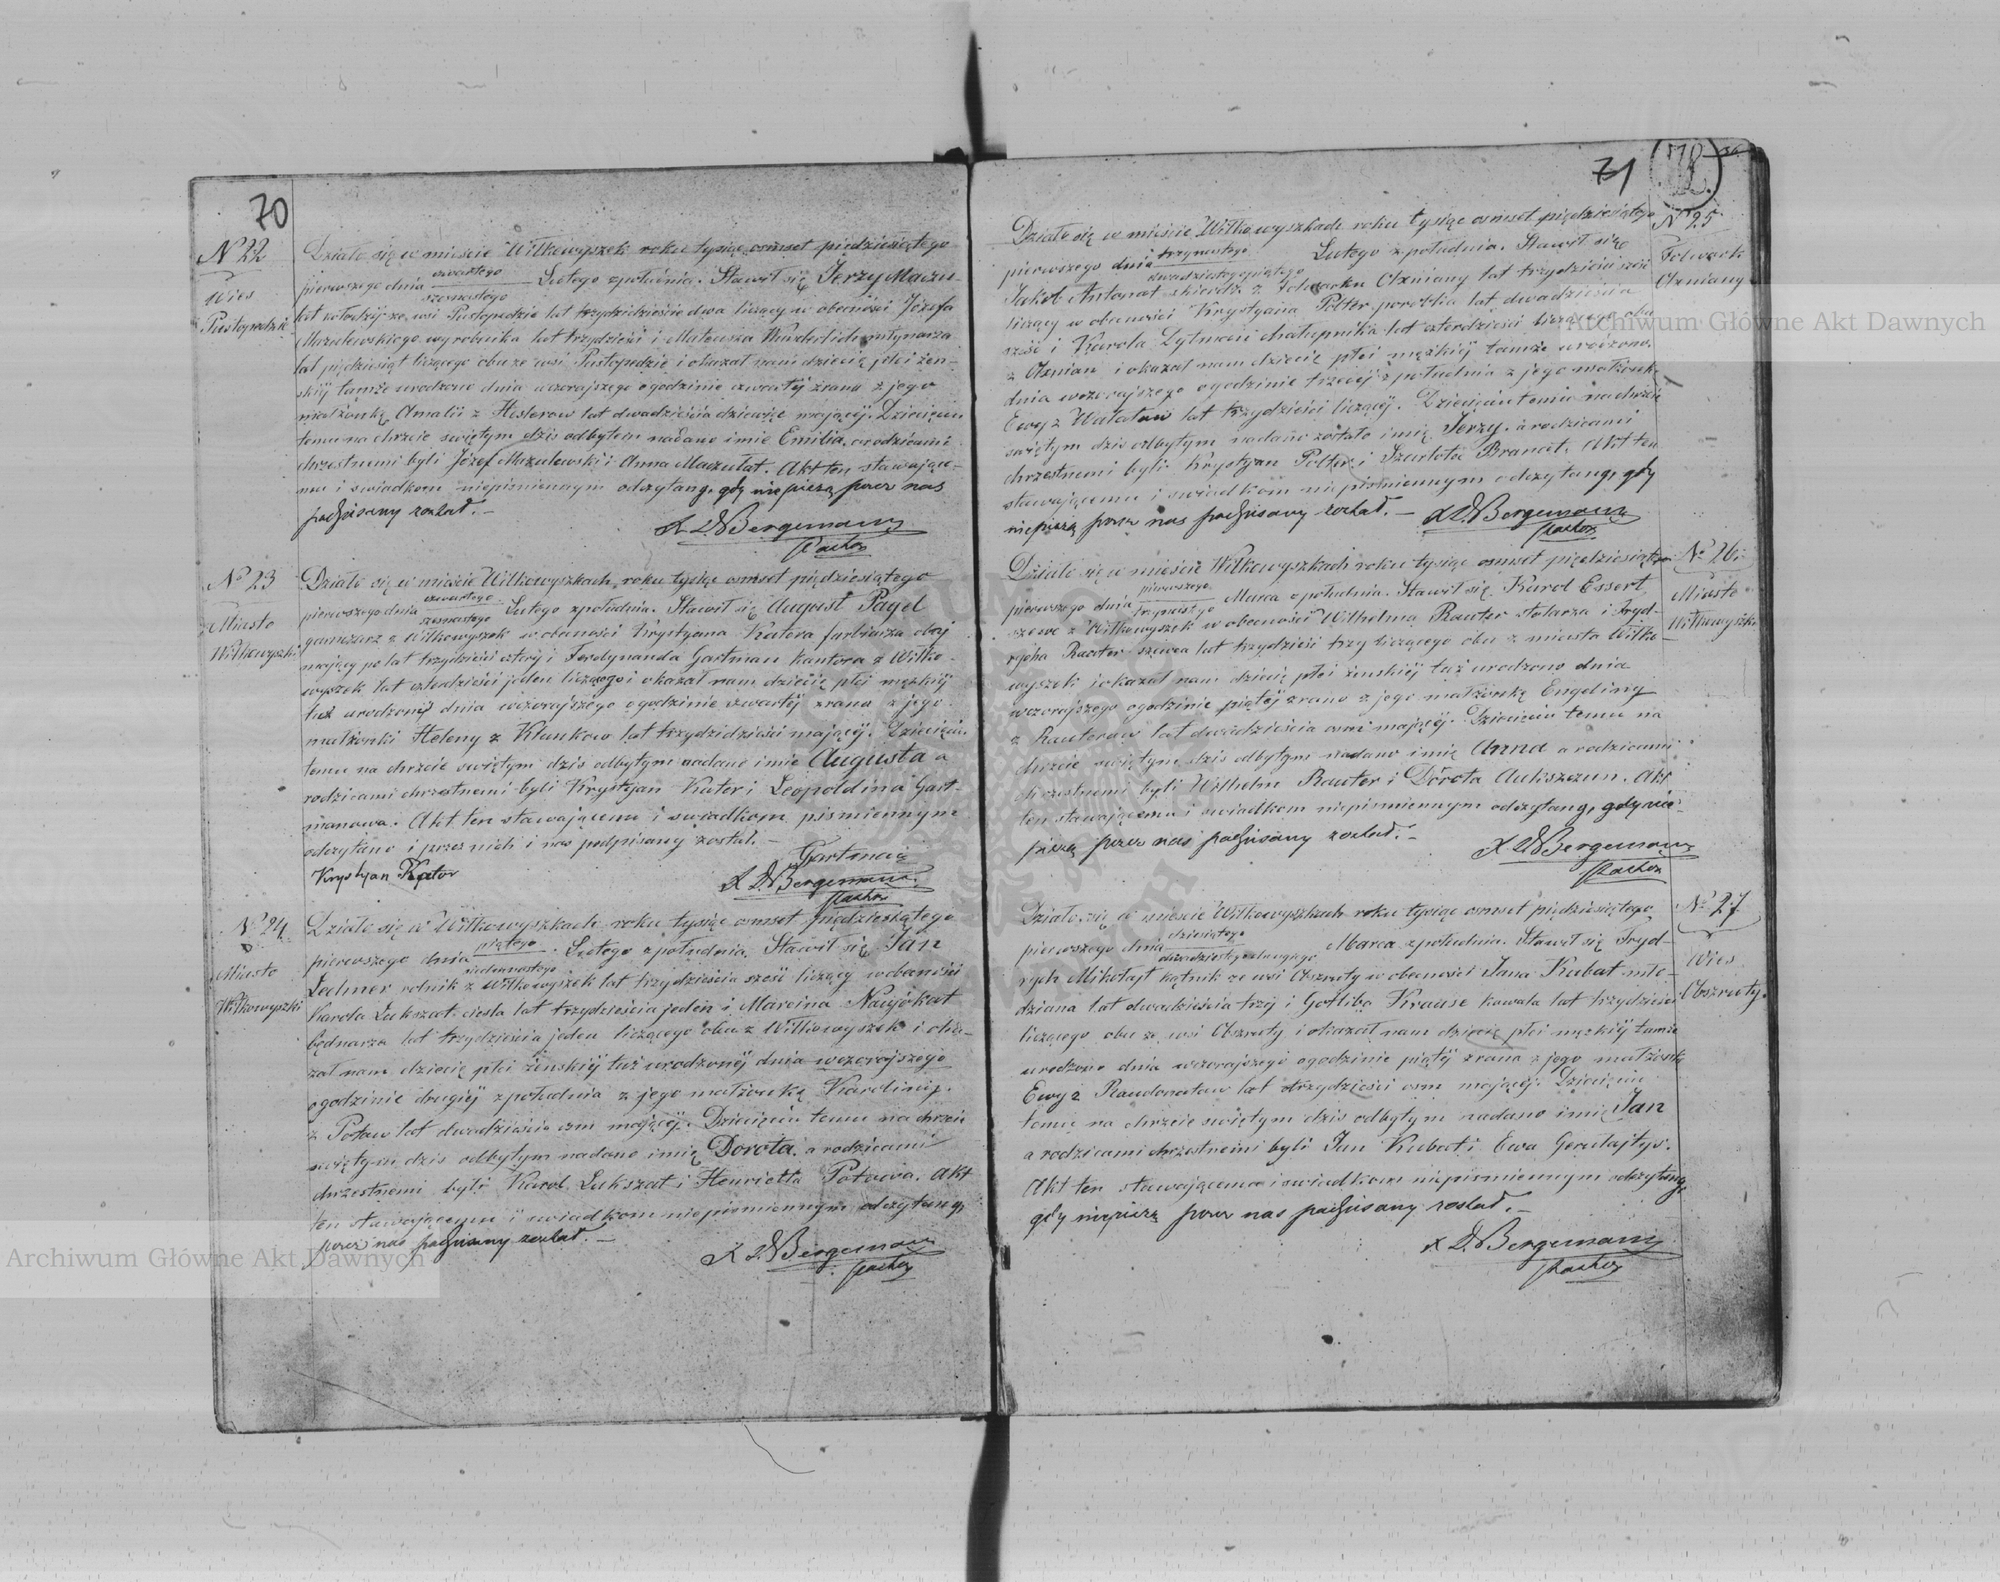 70
N 22
Wieś
Pustopedzie
Działo się w mieście Wiłkowyszek roku tysiąc ośmset pięćdziesiątego
pierwszego dnia czwartego szesnastego Lutego z południa. Stawił się Jerzy Maczu-
łat kołodziej ze wsi Pustopedzie lat trzydzieście dwa liczący w obecności Józefa
Mazulewskiego wyrobnika lat trzydzieści i Mateusza Wunderlich młynarza
lat pięćdziesiąt liczącego obu ze wsi Pustopedzie i okazał nam dziecię płci żeń-
skiej tamże urodzone dnia wczorajszego o godzinie czwartej zrana z jego
małżonką Amalii z Heslerow lat dwadzieścia dziewięć mającej. Dziecięciu
temu na chrzcie świętym dziś odbytem nadano imie Emilia, a rodzicami
chrzestnemi byli Józef Mazulewski i Anna Maczułat. Akt ten stawające-
mu i świadkom niepismiennym odczytany, gdy niepiszą przez nas
podpisany został. —
X D Bergemann
Pastor
No 23
Miasto
Wiłkowyszki
Działo się w mieście Wiłkowyszkach, roku tysiąc ośmset pięćdziesiątego
pierwszego dnia czwartego szesnastego Lutego z południa. Stawił się August Pagel
garncarz z Wiłkowyszek w obecności Krystyana Katera farbiarza obaj
mający po lat trzydzieści cztery i Ferdynanda Gartman Kantora z Wiłko-
wyszek lat czterdzieści jeden liczącego i okazał nam dziecię płci męzkiej
tuż urodzone dnia wczorajszego o godzinie czwartej zrana z jego
małżonki Heleny z Klunkow lat trzydzieści mającej. Dziecięciu
temu na chrzcie świętym dziś odbytym nadano imie Augusta a
rodzicami chrzestnemi byli Krystjan Kater i Leopoldina Gart-
manowa. Akt ten stawającemu i świadkom pismiennym
odczytano i przez nich i nas podpisany został. —
Gartman
Krystjan Kater
X D Bergemann.
Pastor
No 24.
Miasto
Wiłkowyszki
Działo się w Wiłkowyszkach roku tysiąc ośmset pięćdziesiątego
pierwszego dnia piątego siedmnastego Lutego z południa. Stawił się Jan
Lechner rolnik z Wiłkowyszek lat trzydzieścia sześć liczący w obecności
Karola Lukszat cieśla lat trzydzieścia jeden i Marcina Naujokat
bednarza lat trzydzieścia jeden liczącego obu z Wiłkowyszek i oka-
zał nam dziecię płci żeńskiej tuż urodzonej dnia wczorajszego
o godzinie drugiej z południa z jego małżonką Karoliny
z Potaw lat dwadzieścia osm mającej. Dziecięciu temu na chrzcie
świętym dziś odbytym nadano imię Dorota. a rodzicami
chrzestnemi byli Karol Lukszat i Henrietta Potawa. Akt
ten stawającemu i świadkom niepismiennym odczytany,
przez nas podpisany został. —
X D Bergemann
Pastor
71
N 25
Folwark
Oznimany
Działo się w mieście Wiłkowyszkach roku tysiąc ośmset pięćdziesiątego
pierwszego dnia trzynastego dwudziestego piątego Lutego z południa. Stawił się
Jakob Antonat z Folwarku lat trzydzieści sześć
liczący w obecności Krystyana Polter parobka lat dwadzieścia
sześć i Karola Dytman chałupnika lat czterdzieści liczącego obu
z i okazał nam dziecię płci męzkiej tamże urodzone
dnia wczorajszego o godzinie trzeciej z południa z jego małżonki
Ewy z lat trzydzieści liczącej. Dziecięciu temu na chrzcie
świętym dziś odbytym nadano zostało imię Jerzy. a rodzicami
chrzestnemi byli Krystyan Polter i Szarlota Brancat. Akt ten
stawającemu i świadkom niepismiennym odczytany, gdy
niepiszą przez nas podpisany został. —
X D Bergemann
Pastor
No 26.
Miasto
Wiłkowyszki
Działo się w mieście Wiłkowyszkach roku tysiąc ośmset pięćdziesiątego
pierwszego dnia pierwszego trzynastego Marca z południa. Stawił się Karol Essert
szewc z Wiłkowyszek w obecności Wilhelma Rauter stolarza i Fryd-
rycha Rauter szewca lat trzydzieści trzy liczącego obu z miasta Wiłko-
wyszek i okazał nam dziecię płci żeńskiej tuż urodzone dnia
wczorajszego o godzinie piątej zrana z jego małżonką Engeliny
z Rauterow lat dwadzieścia osm mającej. Dziecięciu temu na
chrzcie świętym dziś odbytym nadano imię Anna a rodzicami
chrzestnemi byli Wilhelm Rauter i Dorota. Akt
ten stawającemu i świadkom niepismiennym odczytany, gdy nie
piszą przez nas podpisany został. —
X D Bergemann
Pastor
No 27.
Wieś
Obszruty.
Działo się w mieście Wiłkowyszkach roku tysiąc ośmset pięćdziesiątego
pierwszego dnia dziesiątego dwudziestego drugiego Marca z południa. Stawił się Fryd-
rych Mikołajt kątnik ze wsi Obszruty w obecności Jana Kubat mło-
dziana lat dwadzieścia trzy i Gotliba Krause kowala lat trzydzieści
liczącego obu ze wsi Obszruty i okazał nam dziecię płci męzkiej tamże
urodzone dnia wczorajszego o godzinie piątej zrana z jego małżonką
Ewy z lat trzydzieści osm mającej. Dziecięciu
temu na chrzcie świętym dziś odbytym nadano imię Jan
a rodzicami chrzestnemi byli Jan Kubat i Ewa Gerulajtys.
Akt ten stawającemu i świadkom niepismiennym odczytany,
gdy niepiszą przez nas podpisany został. —
X D. Bergemann
Pastor
Archiwum Główne Akt Dawnych
Archiwum Główne Akt Dawnych